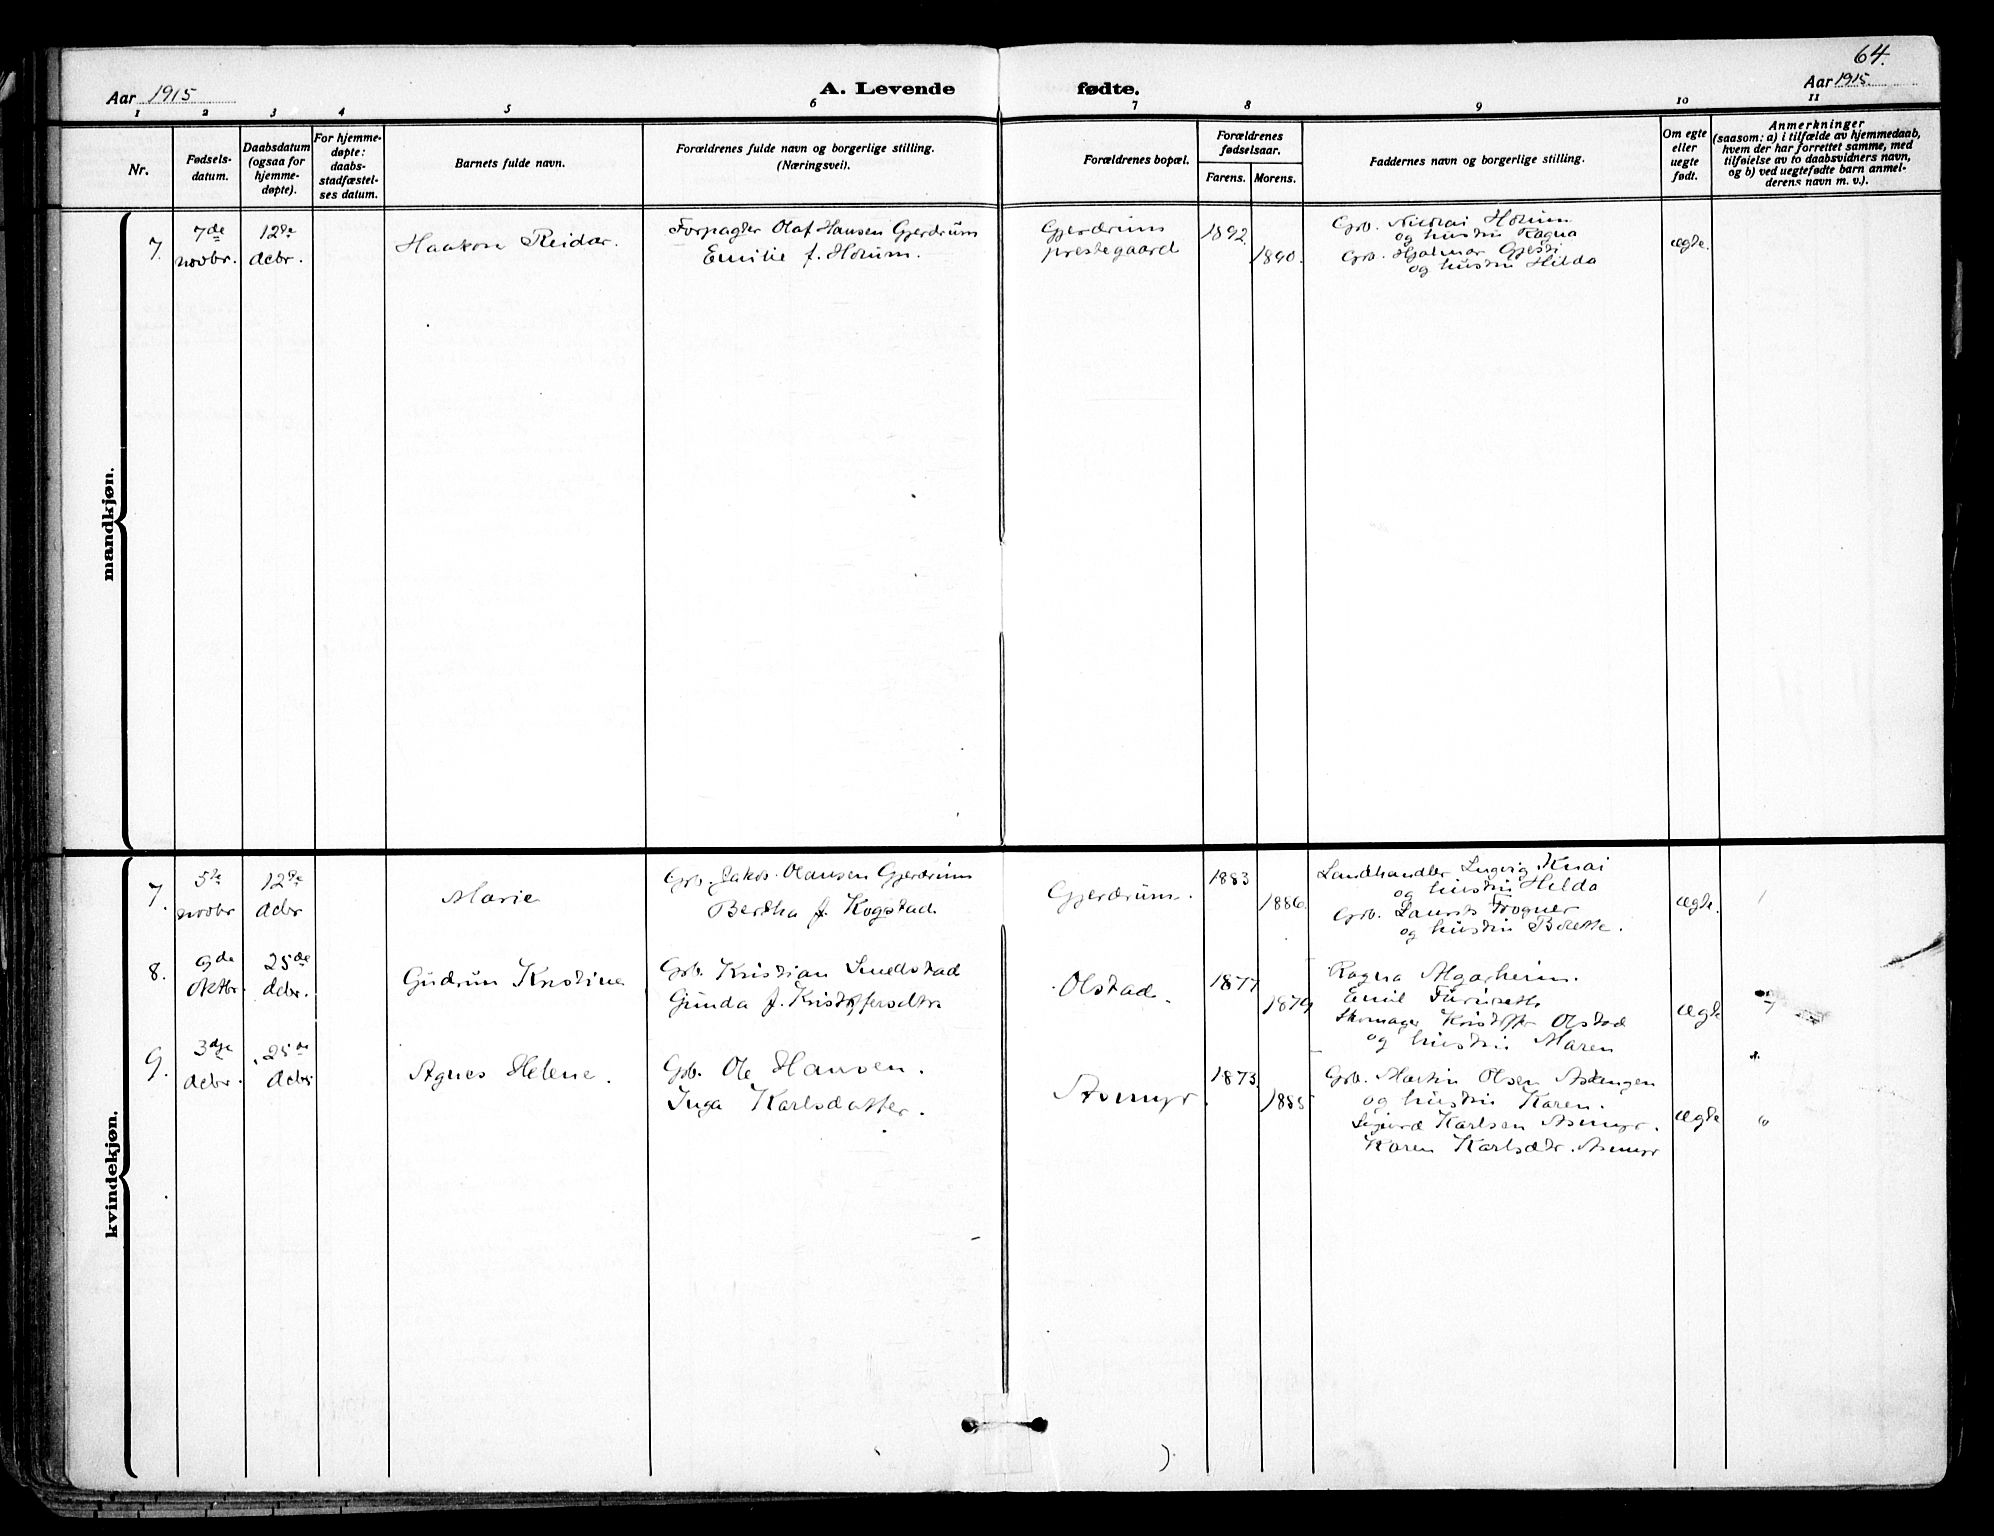 64.
Aar 1915
A. Levende fødte.
Aar 1915
1 2 3 4 5 6 7 8 9 10 11
Nr.
Fødsels-
datum.
Daabsdatum
(ogsaa for
hjemme-
døpte).
For hjemme-
døpte:
daabs-
stadfæstel-
ses datum.
Barnets fulde navn.
Forældrenes fulde navn og borgerlige stilling.
(Næringsvei).
Forældrenes bopæl.
Forældrenes
fødselsaar.
Farens. Morens.
Faddernes navn og borgerlige stilling.
Om egte
eller
uegte
født.
Anmerkninger
(saasom: a) i tilfælde av hjemmedaab,
hvem der har forrettet samme, med
tilføielse av to daabsvidners navn,
og b) ved uegtefødte barn anmel-
derens navn m. v.).
mandkjøn.
7.
7de
novbr.
12te
dcbr.
Haakon Reidar.
Forpagter Olaf Hansen Gjerdrum
Emilie f. Horum.
Gjerdrum
prestegaard
1892
1890.
Grb. Nicolai Horum
og hustru Ragna
Grb. Hjalmar Gjesti
og hustru Hilda
ægte.
kvindekjøn.
7.
5te
novbr
12te
dcbr
Marie
Grb. Jakob Olausen Gjerdrum
Bertha f. Kogstad.
Gjerdrum.
1883
1886.
Landhandler Ludvig Knai
og hustru Hilda
Grb. Laurits Trogner
og hustru Borette.
ægte.
8.
9de
oktbr.
25de
dcbr.
Gudrun Kristine
Grb. Kristian Smedstad
Gunda f. Kristoffersdtr
Olstad.
1877
1879
Ragna Algarheim.
Emil Furuseth
Skomager Kristoffer Olstad
og hustru Maren
ægte
7
9.
3dje
dcbr.
25de
dcbr.
Agnes Helene.
Grb. Ole Hansen.
Inga Karlsdatter.
Asmyr.
1873
1885
Grb. Martin Olsen Askengen
og hustru Karen.
Sigurd Karlsen Asmyr.
Karen Karlsdtr. Asmyr
ægte
"